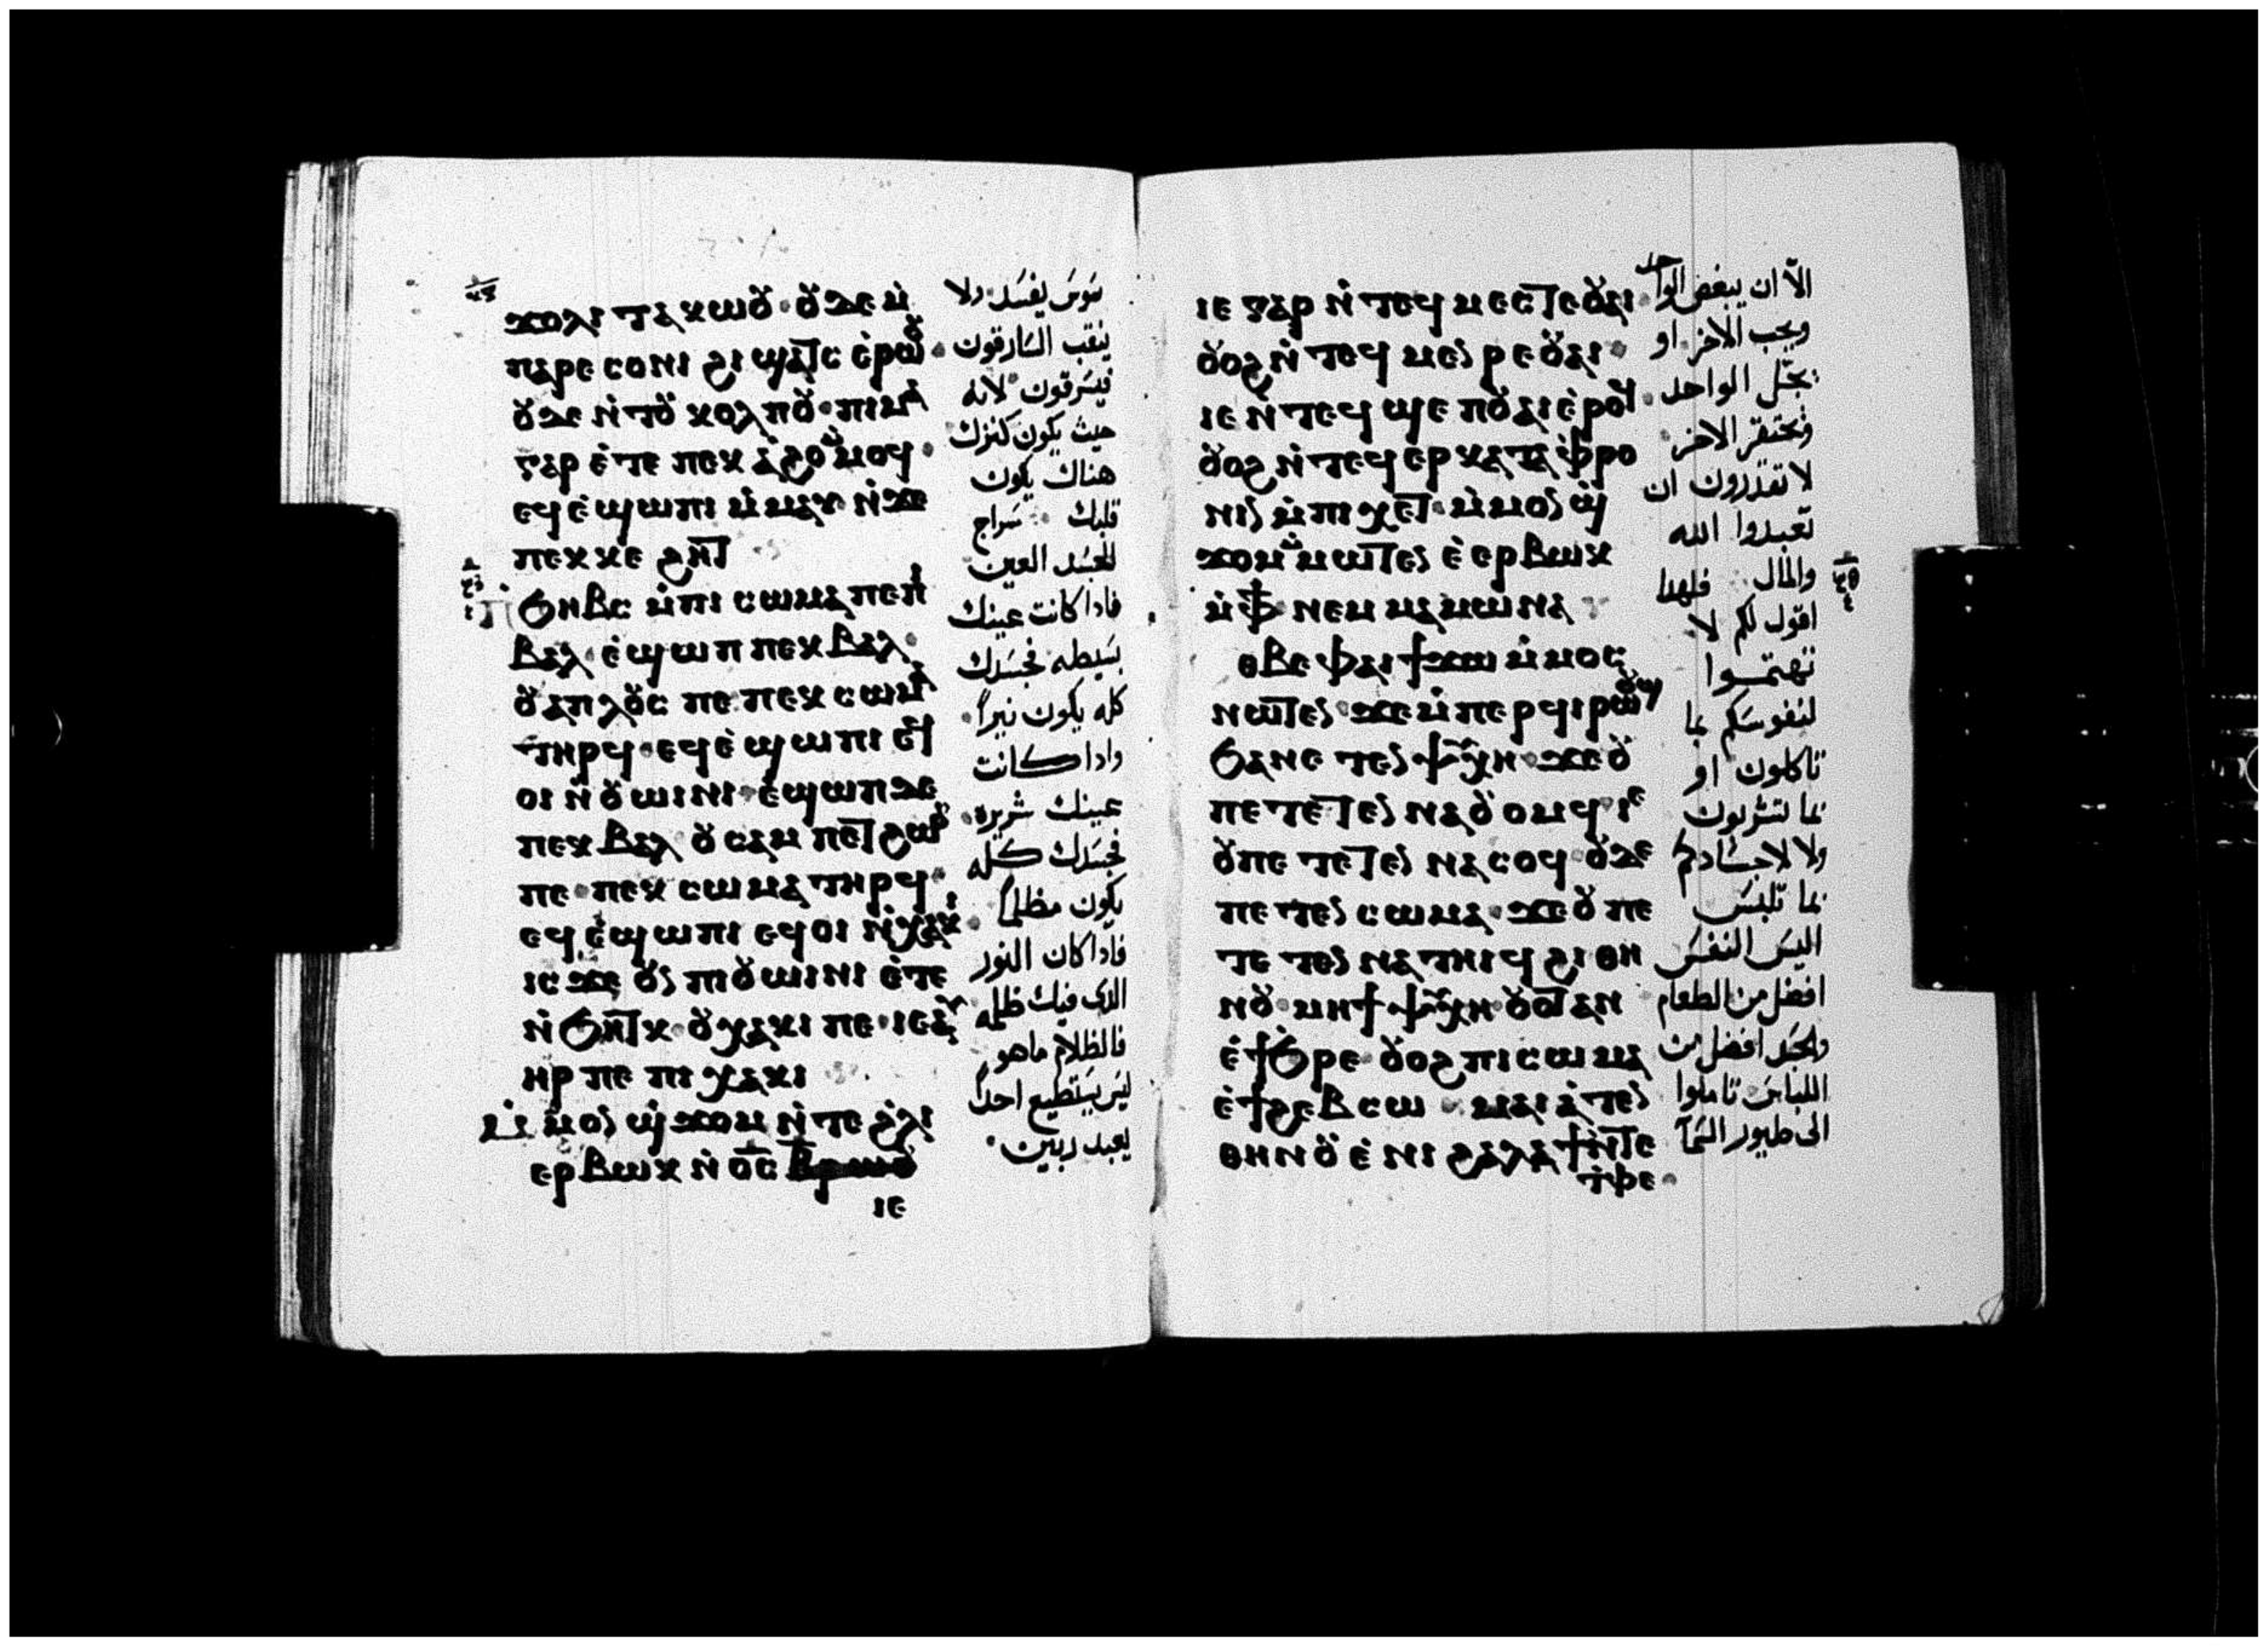 ϫⲟⲗⲓ ⲧⲁⲕⲱⲟⲩ · ⲟⲩⲇⲉ ⲙ̀
ⲡⲁⲣⲉ ⲥⲟⲛⲓ ϩⲓ ϣⲁⲧⲥ ⲉ̀ⲣⲱⲟⲩ ·
ⲟⲩⲇⲉ ⲛ̀ⲧⲟⲩ ⲕⲟⲗⲡⲟⲩ · ⲡⲓⲙⲁ
ⲅⲁⲣ ⲉ̀ⲧⲉ ⲡⲉⲕ ⲁ̀ϩⲟ ⲙ̀ⲙⲟϥ ·
ⲉϥⲉ̀ϣⲱⲡⲓ ⲙ̀ⲙⲁⲩ ⲛ̀ϫⲉ
ⲡⲉⲕⲕⲉ ϩⲏⲧ
Ϧⲏⲃⲥ ⲙ̀ⲡⲓ ⲥⲱⲙⲁ ⲡⲉ ⲡⲓ
ⲃⲁⲗ · ⲉ̀ϣⲱⲡ ⲡⲉⲕ ⲃⲁⲗ
ⲟⲩⲁⲡⲗⲟⲩⲥ ⲡⲉ ⲡⲉⲕ ⲥⲱⲙⲁ
ⲧⲏⲣϥ · ⲉϥⲉ̀ϣⲱⲡⲓ ⲉϥ
ⲟⲓ ⲛ̀ⲟⲩⲱⲓⲛⲓ · ⲉ̀ϣⲱⲡ ⲇⲉ
ⲡⲉⲕ ⲃⲁⲗ ⲟⲩⲥⲁⲙ ⲡⲉⲧϩⲱⲟⲩ
ⲡⲉ · ⲡⲉⲕ ⲥⲱⲙⲁ ⲧⲏⲣϥ ·
ⲉϥⲉ̀ϣⲱⲡⲓ ⲉϥⲟⲓ ⲛ̀ⲭⲁⲕⲓ ·
ⲓⲥϫⲉ ⲟⲩⲛ ⲡⲓⲟⲩⲱⲓⲛⲓ ⲉ̀ⲧⲉ
ⲛ̀ϧⲏⲧⲕ · ⲟⲩⲭⲁⲕⲓ ⲡⲉ · ⲓⲉ ⲁⲩ
ⲏⲣ ⲡⲉ ⲡⲓ ⲭⲁⲕⲓ
ⲙ̀ⲙⲟⲛ ϣ̀ϫⲟⲙ ⲛ̀ⲧⲉ ϩ̀ⲗⲓ
ⲉⲣⲃⲱⲕ ⲛ̀ⲟ̅ⲥ̅ ⲃ̅
ⲓⲉ
سوس يفسد ولا
ينقب السارقون
فيسرقون لانه
حيث يكون كنزك
هناك يكون
قلبك سراج
الجسد العين
فاذا كانت عينك
بسيطه فجسدك
كله يكون نيراً
واذا كانت
عينك شريره
فجسدك كله
يكون مظلماً
فاذا كان النور
الذى فيك ظلمه
فالظلام ماهو
ليس يستطيع احداً
يعبد ربين
ⲓⲉ ⲅⲁⲣ ⲛ̀ⲧⲉϥ ⲙⲉⲥⲧⲉ ⲟⲩⲁⲓ ·
ⲟⲩⲟϩ ⲛ̀ⲧⲉϥ ⲙⲉⲛⲣⲉ ⲟⲩⲁⲓ ·
ⲓⲉ ⲛ̀ⲧⲉϥ ϣⲉⲡ ⲟⲩⲁⲓ ⲉ̀ⲣⲟϥ ·
ⲟⲩⲟϩ ⲛ̀ⲧⲉϥ ⲉⲣ ⲕⲁⲧⲁ ⲫ̀ⲣⲟ
ⲛⲓⲛ ⲙ̀ⲡⲓⲭⲉⲧ · ⲙ̀ⲙⲟⲛ ϣ̀
ϫⲟⲙ ⲙ̀ⲙⲱⲧⲉⲛ ⲉ̀ ⲉⲣⲃⲱⲕ
ⲙ̀ⲫϯ ⲛⲉⲙ ⲙⲁⲙⲱⲛⲁ
ⲑⲃⲉ ⲫⲁⲓ ϯϫⲱ ⲙ̀ⲙⲟⲥ
ⲛⲱⲧⲉⲛ · ϫⲉ ⲙ̀ⲡⲉⲣ ϥⲓⲣⲱⲟⲩϣ
ϧⲁ ⲛⲉ ⲧⲉⲛ ⲯⲩⲭⲏ · ϫⲉ ⲟⲩ
ⲡⲉ ⲧⲉⲧⲉⲛ ⲛⲁⲟⲩⲟⲙϥ · ⲓⲉ
ⲟⲩ ⲡⲉ ⲧⲉⲧⲉⲛ ⲛⲁⲥⲟϥ · ⲟⲩⲇⲉ
ⲡⲉ ⲧⲉⲛ ⲥⲱⲙⲁ · ϫⲉ ⲟⲩ ⲡⲉ
ⲧⲉ ⲧⲉⲛ ⲛⲁ ⲧⲏⲓϥ ϩⲓ ⲑⲏ
ⲛⲟⲩ · ⲙⲏ ϯ ⲯⲩⲭⲏ · ⲟⲩⲟⲧ ⲁⲛ
ⲉ̀ϯϧⲣⲉ · ⲟⲩⲟϩ ⲡⲓⲥⲱⲙⲁ
ⲉ̀ϯϩⲉⲃⲥⲱ · ⲙⲁⲓⲁ̀ⲧⲉⲛ
ⲑⲏⲛⲟⲩ ⲉ̀ⲛⲓ ϩⲁⲗⲁϯ ⲛ̀ⲧⲉ
ⲧ̀ⲫⲉ ·
الا ان يبغض الواحد
ويحب الاخر او
يجل الواحد
ويحتقر الاخر
لا تقدرون ان
تعبدوا الله
والمال فلهذا
اقول لكم لا
تهتموا
لنفوسكم بما
تاكلون او
بما تشربون
ولا لاجسادكم
بما تلبس
اليس النفس
افضل من الطعام
والجسد افضل من
اللباس تاملوا
الى طيور السمآ